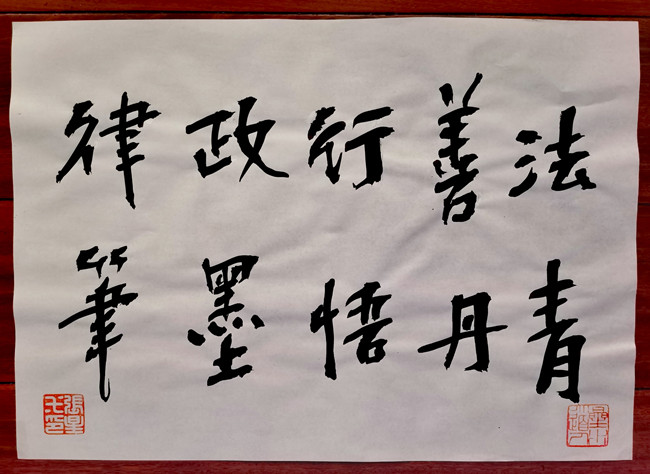 律政行善法
筆墨悟丹青
張星